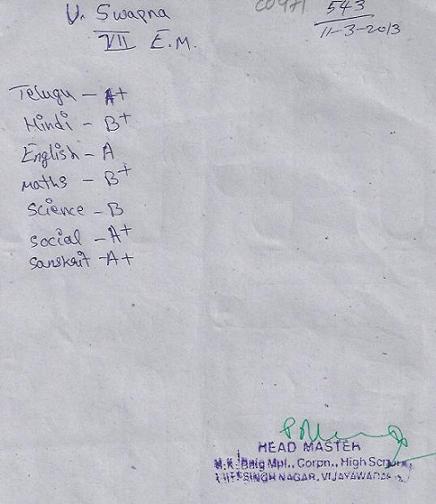 V. Swapna
VII E.M.
543
11-3-2013
Telugu - A+
Hindi - B+
English - A
Maths - B+
Science - B
Social - A+
Sanskrit - A+
HEAD MASTER
Baig Mpl., Corpn., High School
SINGH NAGAR, VIJAYAWADA